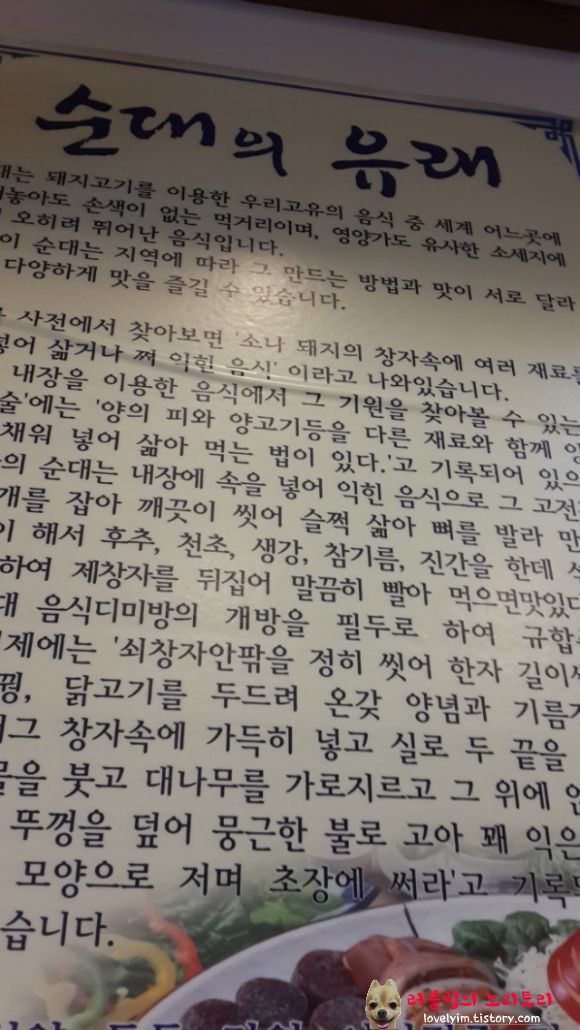 순대의 유래
돼지고기를 이용한 우리고유의 음식 중 세계 어느곳에
손색이 없는 먹거리이며, 영양가도 유사한 소세지에
오히려 뛰어난 음식입니다.
순대는 지역에 따라 그 만드는 방법과 맛이 서로 달라
다양하게 맛을 즐길 수 있습니다.
사전에서 찾아보면 '소나 돼지의 창자속에 여러 재료를
넣어 삶거나 쪄 익힌 음식' 이라고 나와있습니다.
내장을 이용한 음식에서 그 기원을 찾아볼 수 있는
술'에는 '양의 피와 양고기등을 다른 재료와 함께
채워 넣어 삶아 먹는 법이 있다.'고 기록되어 있으
의 순대는 내장에 속을 넣어 익힌 음식으로 그 고전
개를 잡아 깨끗이 씻어 슬쩍 삶아 뼈를 발라 만
이 해서 후추, 천초, 생강, 참기름, 진간을 한데
하여 제창자를 뒤집어 말끔히 빨아 먹으면맛있다
대 음식디미방의 개방을 필두로 하여 규합
제에는 '쇠창자안팎을 정히 씻어 한자 길이씩
꿩, 닭고기를 두드려 온갖 양념과 기름
창자속에 가득히 넣고 실로 두 끝을
물을 붓고 대나무를 가로지르고 그 위에
뚜껑을 덮어 뭉근한 불로 고아 꽤 익은
모양으로 저며 초장에 써라'고 기록
습니다.
러블림의 노리토리
lovelyim.tistory.com